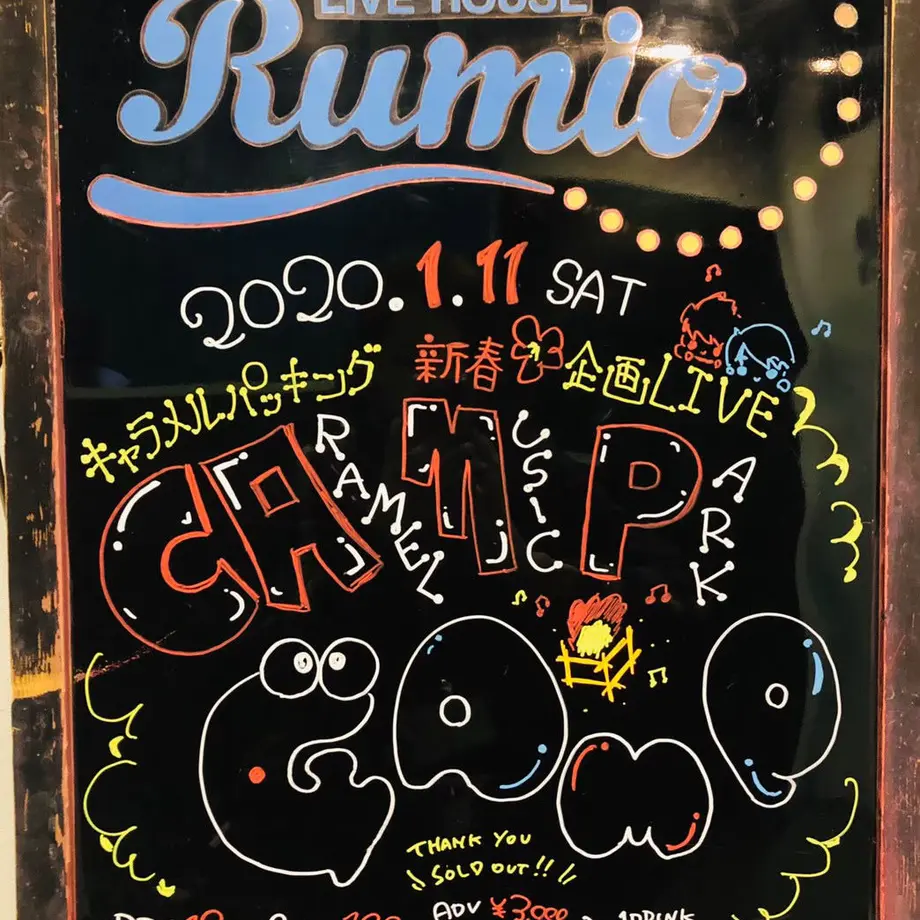 LIVE HOUSE
Rumio
2020.1.11 SAT
キャラメルパッキング 新春 企画LIVE
CARAMEL MUSIC PARK
CAMP
THANK YOU
SOLD OUT!!
ADV ¥3000 1DRINK